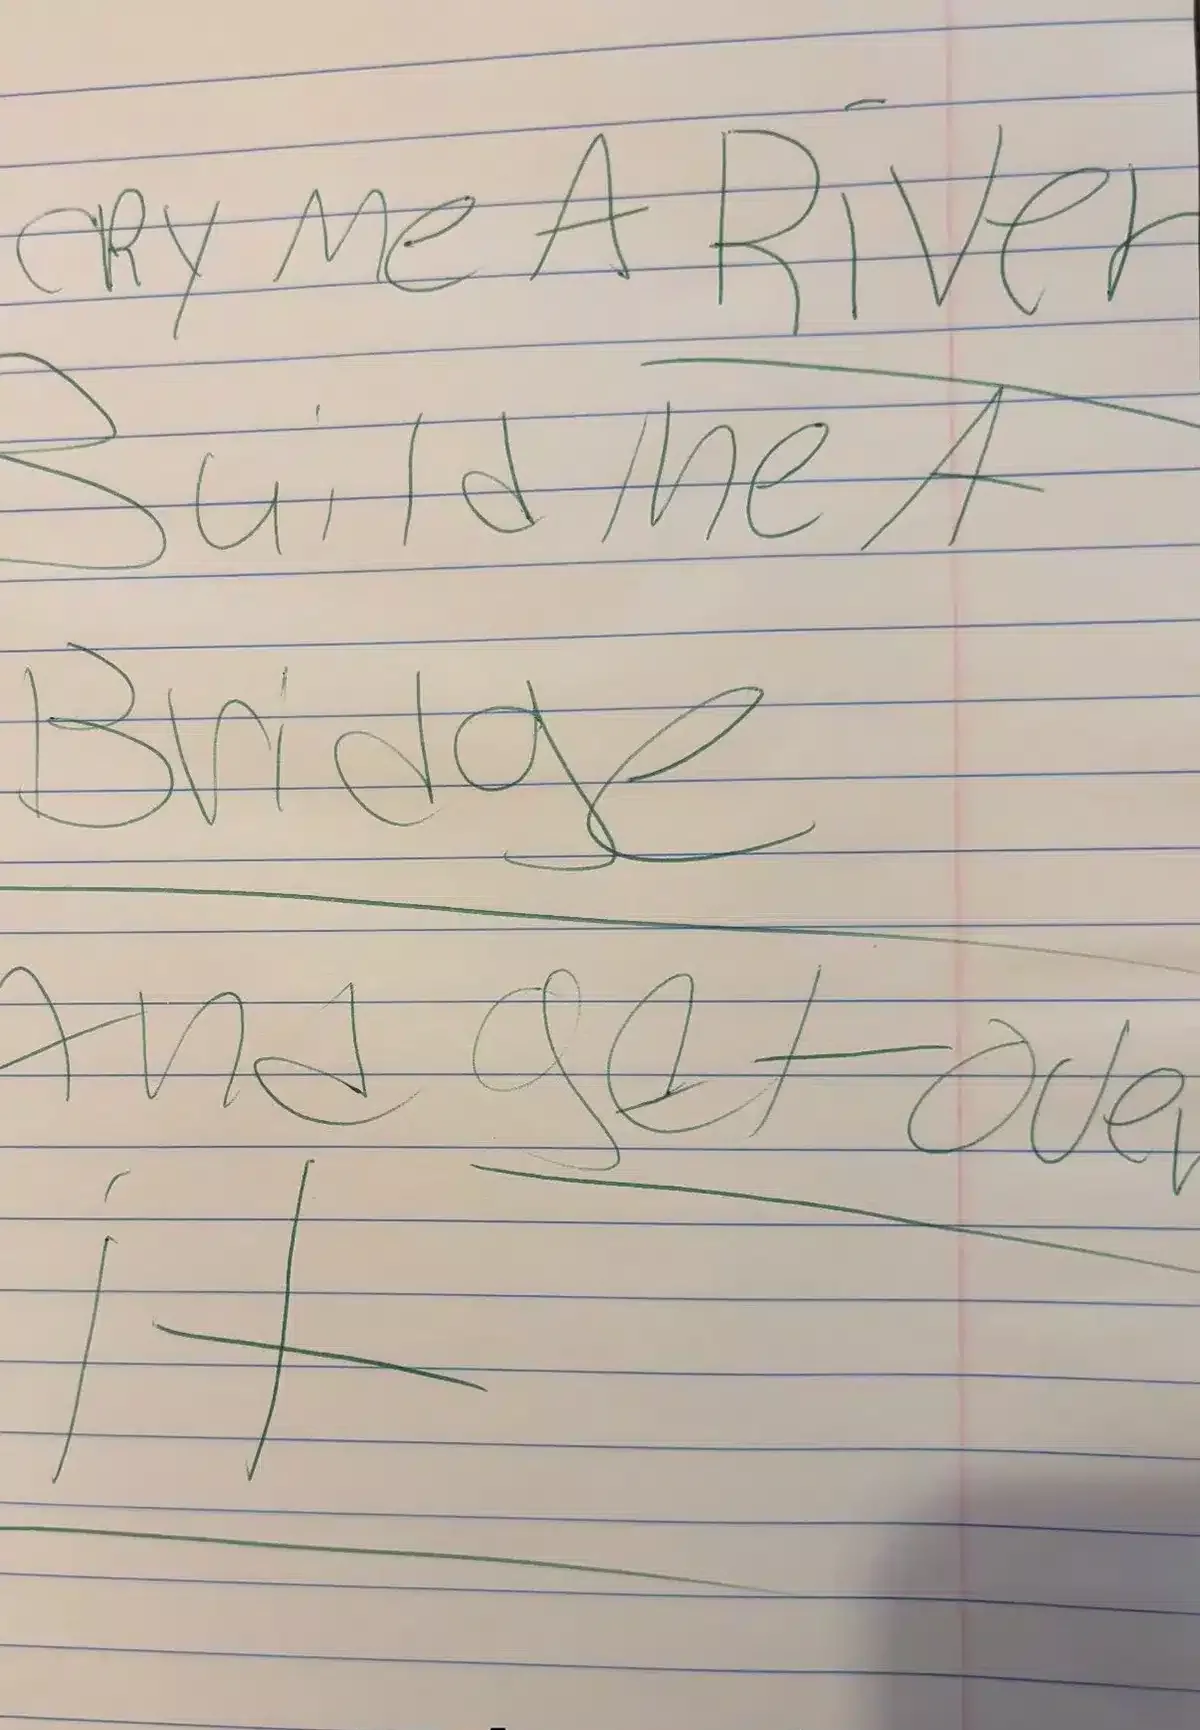 CRY Me A RiVer
Build me A
Bridge
And get over
it